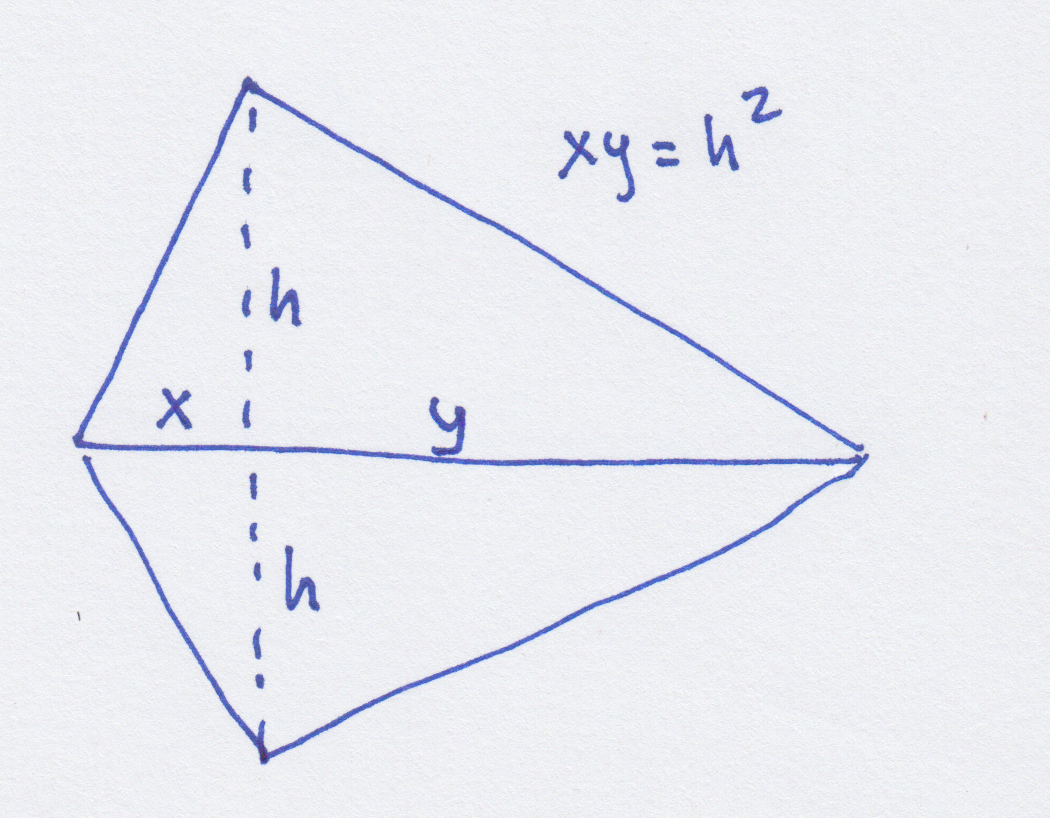 xy = h²
h
x
y
h